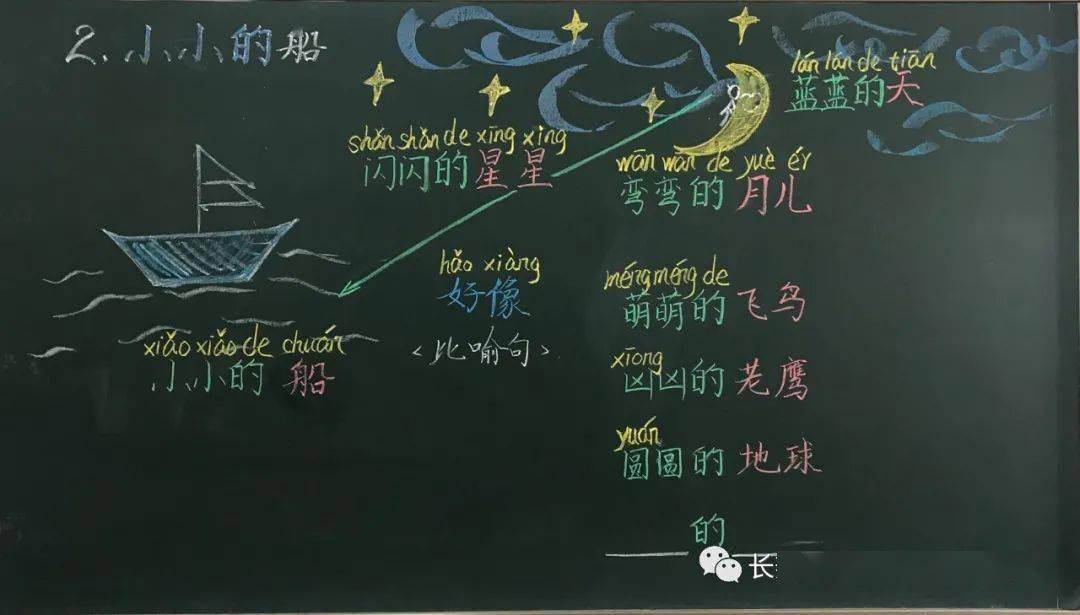 2.小小的船
lán lán de tiān
蓝蓝的天
shǎn shǎn de xīng xing
闪闪的星星
wān wān de yuè ér
弯弯的月儿
hǎo xiàng
好像
<比喻句>
xiǎo xiǎo de chuán
小小的船
méng méng de
萌萌的飞鸟
xiōng
凶凶的老鹰
yuán
圆圆的地球
____的____
长